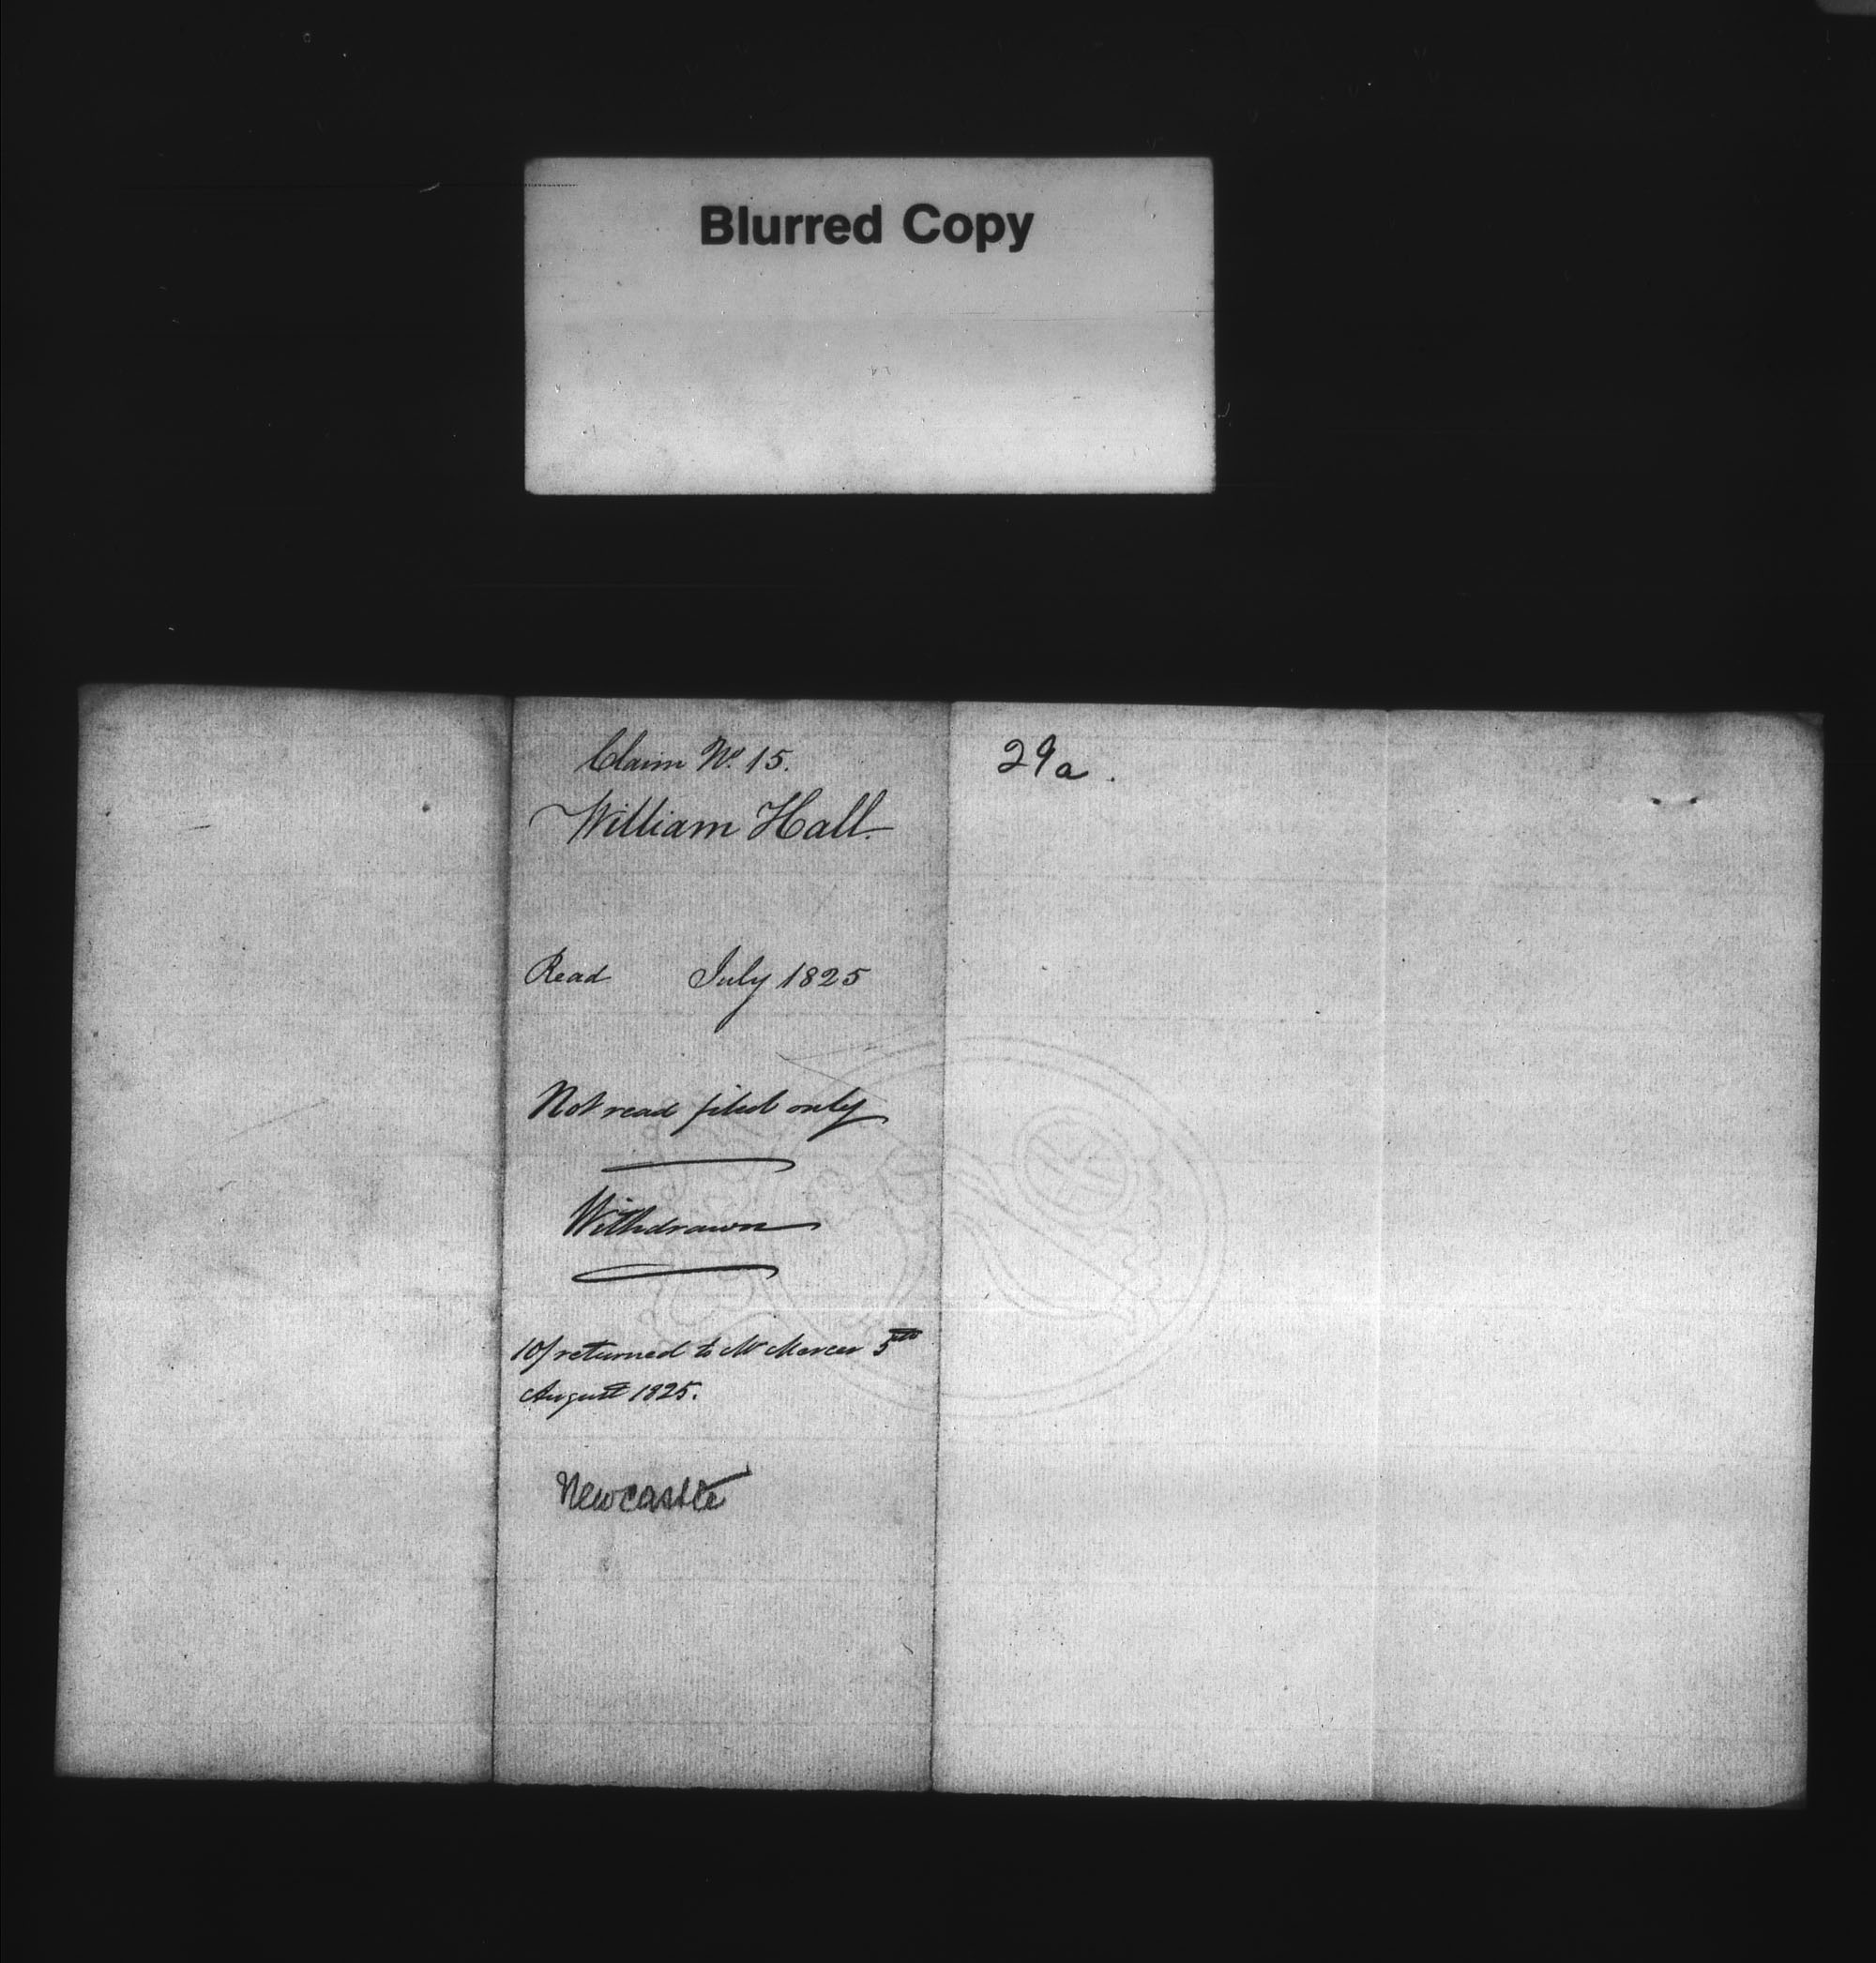 Blurred Copy
Claim No. 15.
William Hall.
Read July 1825
Not read filed only
Withdrawn
10/ returned to Mr Mercer 5th
August 1825.
Newcastle
29a.